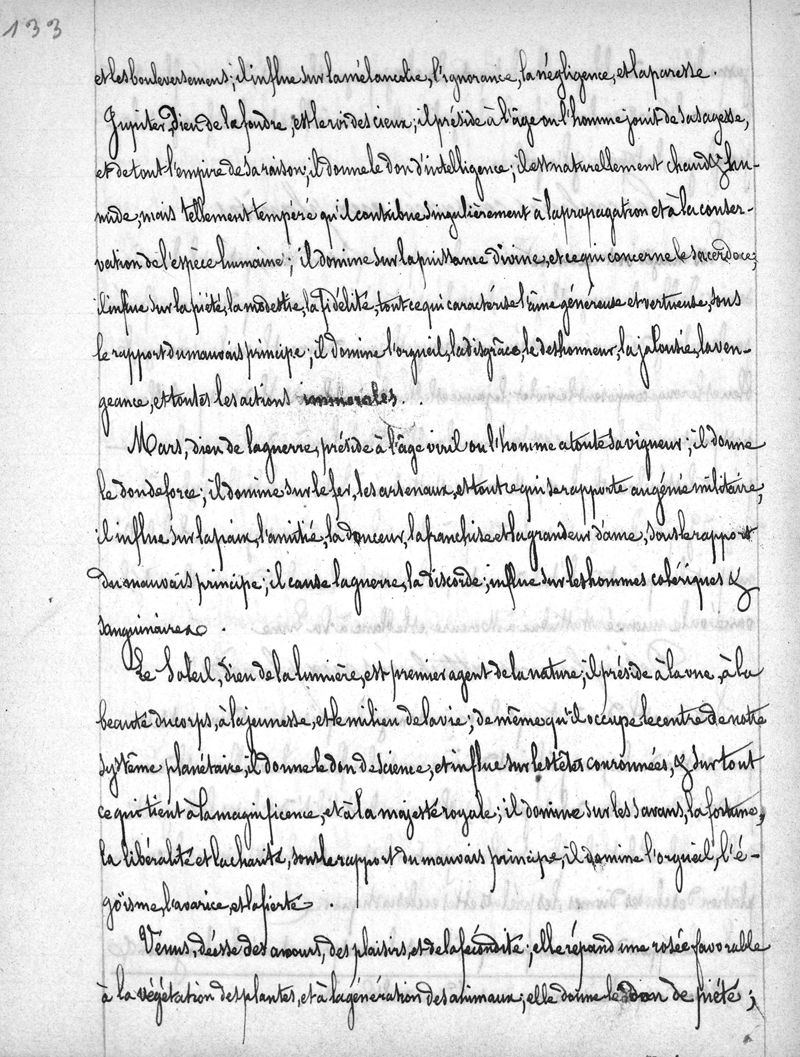 133
et les bouleversemens; il influe sur la mélancolie, l'ignorance, la négligence, et la paresse.
Jupiter, Dieu de la foudre, est le roi des cieux; il préside à l'âge ou l'homme jouit de sa sagesse,
et de tout l'empire de sa raison; il donne le don d'intelligence; il est naturellement chaud & hu-
mide, mais tellement tempéré qu'il contribue singulièrement à la propagation et à la conser-
vation de l'espèce humaine; il domine sur la puissance divine, et ce qui concerne le sacerdoce;
il influe sur la piété, la modestie, la fidélité, tout ce qui caractérise l'âme généreuse et vertueuse, sous
le rapport du mauvais principe; il domine l'orgueil, la disgrâce, le deshonneur, la jalousie, la ven-
geance, et toutes les actions immorales.
Mars, dieu de la guerre, préside à l'âge viril ou l'homme a toute sa vigueur; il donne
le don de force; il domine sur le fer, les arsenaux, et tout ce qui se rapporte au génie militaire,
il influe sur la paix, l'amitié, la douceur, la franchise et la grandeur d'ame, sous le rapport
du mauvais principe; il cause la guerre, la discorde; influe sur les hommes colériques &
sanguinaires.
Le Soleil, Dieu de la lumière, est premier agent de la nature; il préside à la vue, à la
beauté du corps, à la jeunesse, et le milieu de la vie; de même qu'il occupe le centre de notre
système planétaire, il donne le don de science, et influe sur les têtes couronnées, & sur tout
ce qui tient à la magnificence, et à la majesté royale; il domine sur les savans, la fortune,
la libéralité et la charité, sous le rapport du mauvais principe, il domine l'orgueil, l'é-
goïsme, l'avarice, et la fierté.
Vénus, déesse des amours, des plaisirs, et de la fécondité; elle répand une rosée favorable
à la végétation des plantes, et à la génération des animaux; elle donne le don de piété;